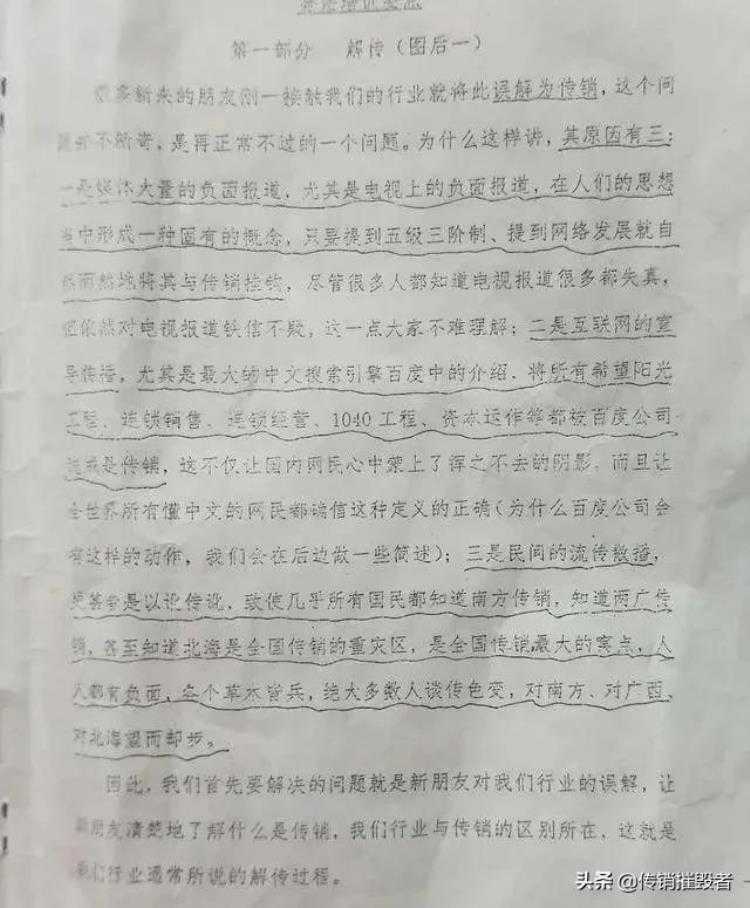 第一部分 解传(图后一)
很多新来的朋友刚一接触我们的行业就将此误解为传销，这个问
题并不新奇，是再正常不过的一个问题。为什么这样讲，其原因有三：
一是媒体大量的负面报道，尤其是电视上的负面报道，在人们的思想
当中形成一种固有的概念，只要提到五级三阶制、提到网络发展就自
然而然地将其与传销挂钩，尽管很多人都知道电视报道很多都失真，
但依然对电视报道铁信不疑，这一点大家不难理解；二是互联网的宣
导传播，尤其是最大的中文搜索引擎百度中的介绍、将所有希望阳光
工程、连锁销售、连锁经营、1040工程、资本运作等都被百度公司
说成是传销，这不仅让国内网民心中蒙上了挥之不去的阴影，而且让
全世界所有懂中文的网民都确信这种定义的正确(为什么百度公司会
有这样的动作，我们会在后边做一些简述)；三是民间的流传散播，
更甚者是以讹传讹，致使几乎所有国民都知道南方传销，知道两广传
销，甚至知道北海是全国传销的重灾区，是全国传销最大的窝点，人
人都有负面，个个草木皆兵，绝大多数人谈传色变，对南方、对广西、
对北海望而却步。
因此，我们首先要解决的问题就是新朋友对我们行业的误解，让
新朋友清楚地了解什么是传销，我们行业与传销的区别所在，这就是
我们行业通常所说的解传过程。
头条 @传销摧毁者